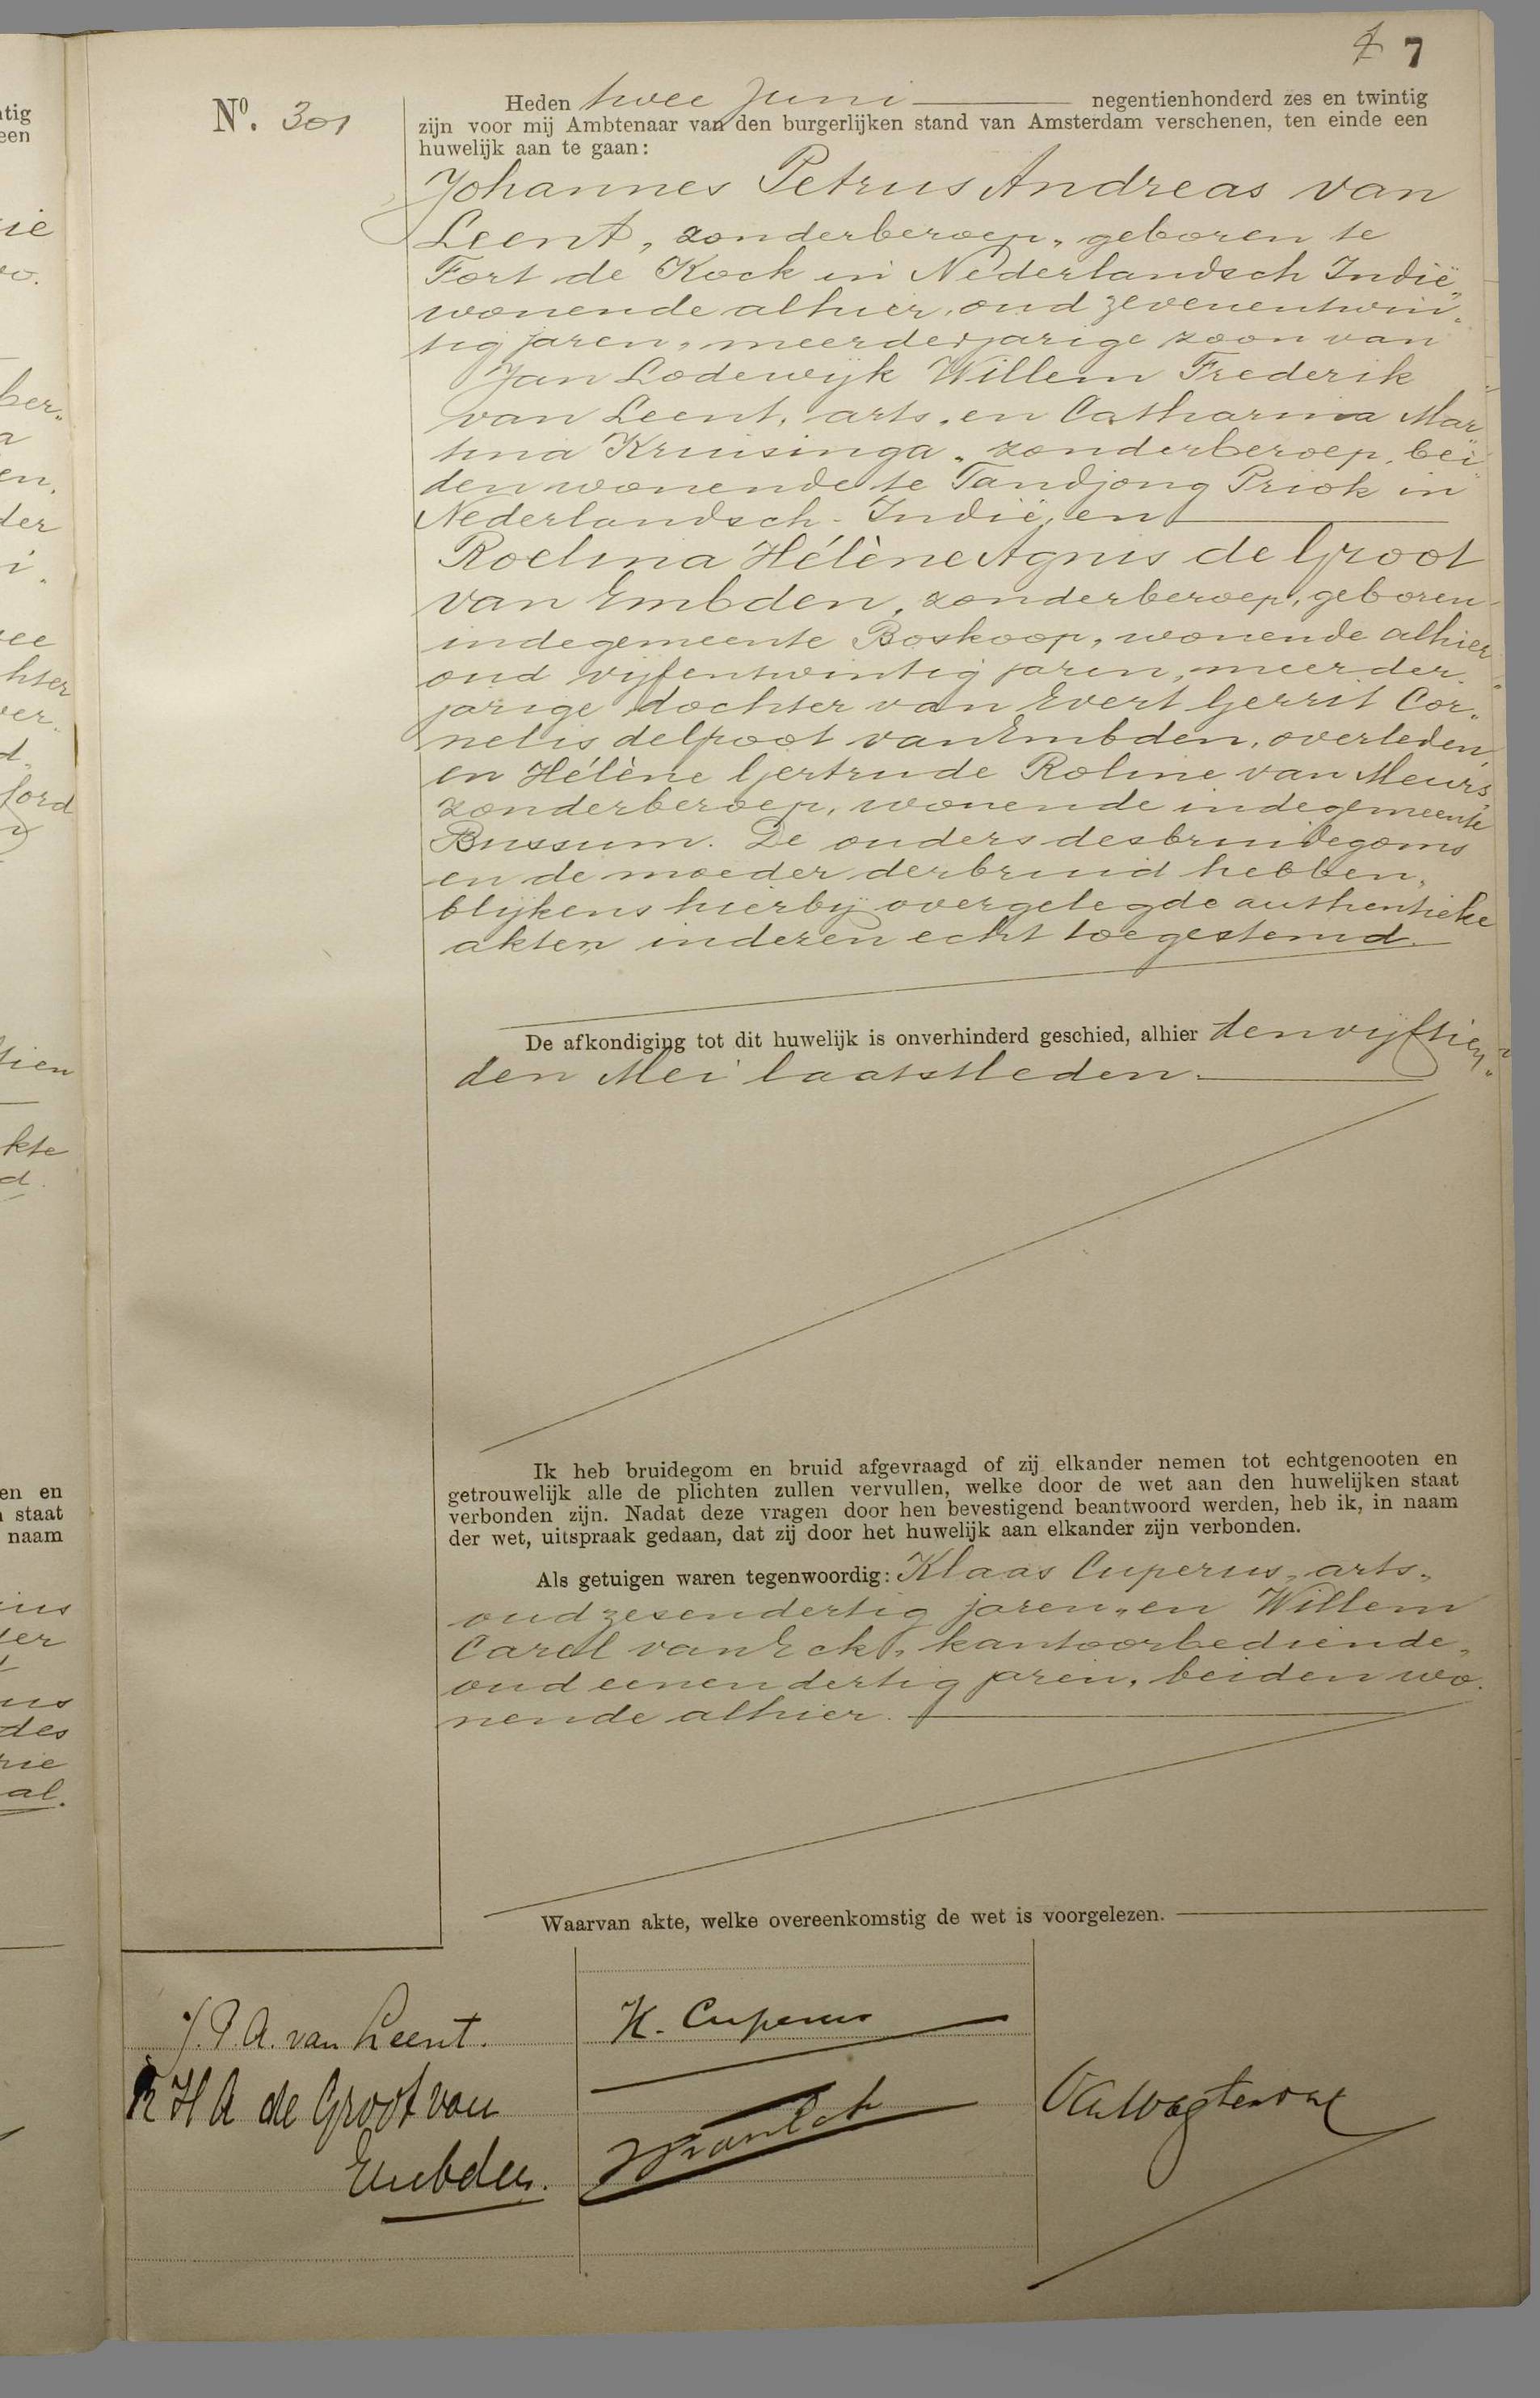 7
Nº. 301
Heden twee Juni negentienhonderd zes en twintig
zijn voor mij Ambtenaar van den burgerlijken stand van Amsterdam verschenen, ten einde een
huwelijk aan te gaan:
Johannes Petrus Andreas van
Leent, zonderberoep, geboren te
Fort de Kock in Nederlandsch Indië,
wonende alhier, oud zevenentwin„
tig jaren, meerderjarige zoon van
Jan Lodewijk Willem Frederik
van Leent, arts, en Catharina Mar„
tina Kruisinga, zonderberoep, bei„
den wonende te Tandjong Priok in
Nederlandsch-Indië, en
Roelina Hélène Agnis de Groot
van Embden, zonderberoep, geboren
indegemeente Boskoop, wonende alhier,
oud vijfentwintig jaren, meerder„
jarige dochter van Evert Gerrit Cor„
nelis deGroot vanEmbden, overleden,
en Hélène Gertrude Roline van Meurs,
zonderberoep, wonende indegemeente
Bussum. De ouders desbruidegoms
en de moeder derbruid hebben,
blijkens hierbij overgelegde authentieke
akten, inderen echt toegestemd.
De afkondiging tot dit huwelijk is onverhinderd geschied, alhier den vijftien„
den Mei laatstleden.
Ik heb bruidegom en bruid afgevraagd of zij elkander nemen tot echtgenooten en
getrouwelijk alle de plichten zullen vervullen, welke door de wet aan den huwelijken staat
verbonden zijn. Nadat deze vragen door hen bevestigend beantwoord werden, heb ik, in naam
der wet, uitspraak gedaan, dat zij door het huwelijk aan elkander zijn verbonden.
Als getuigen waren tegenwoordig: Klaas Cuperus, arts,
oud zesendertig jaren, en Willem
Carel vanEck, kantoorbediende,
oud eenendertig jaren, beiden wo„
nende alhier.
Waarvan akte, welke overeenkomstig de wet is voorgelezen.
J.P.A. van Leent.
K. Cuperus
R H A de Groot van
Embden.